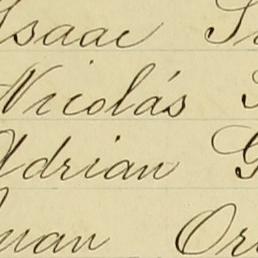 Isaac
Nicolás
Adrian G
Juan Or